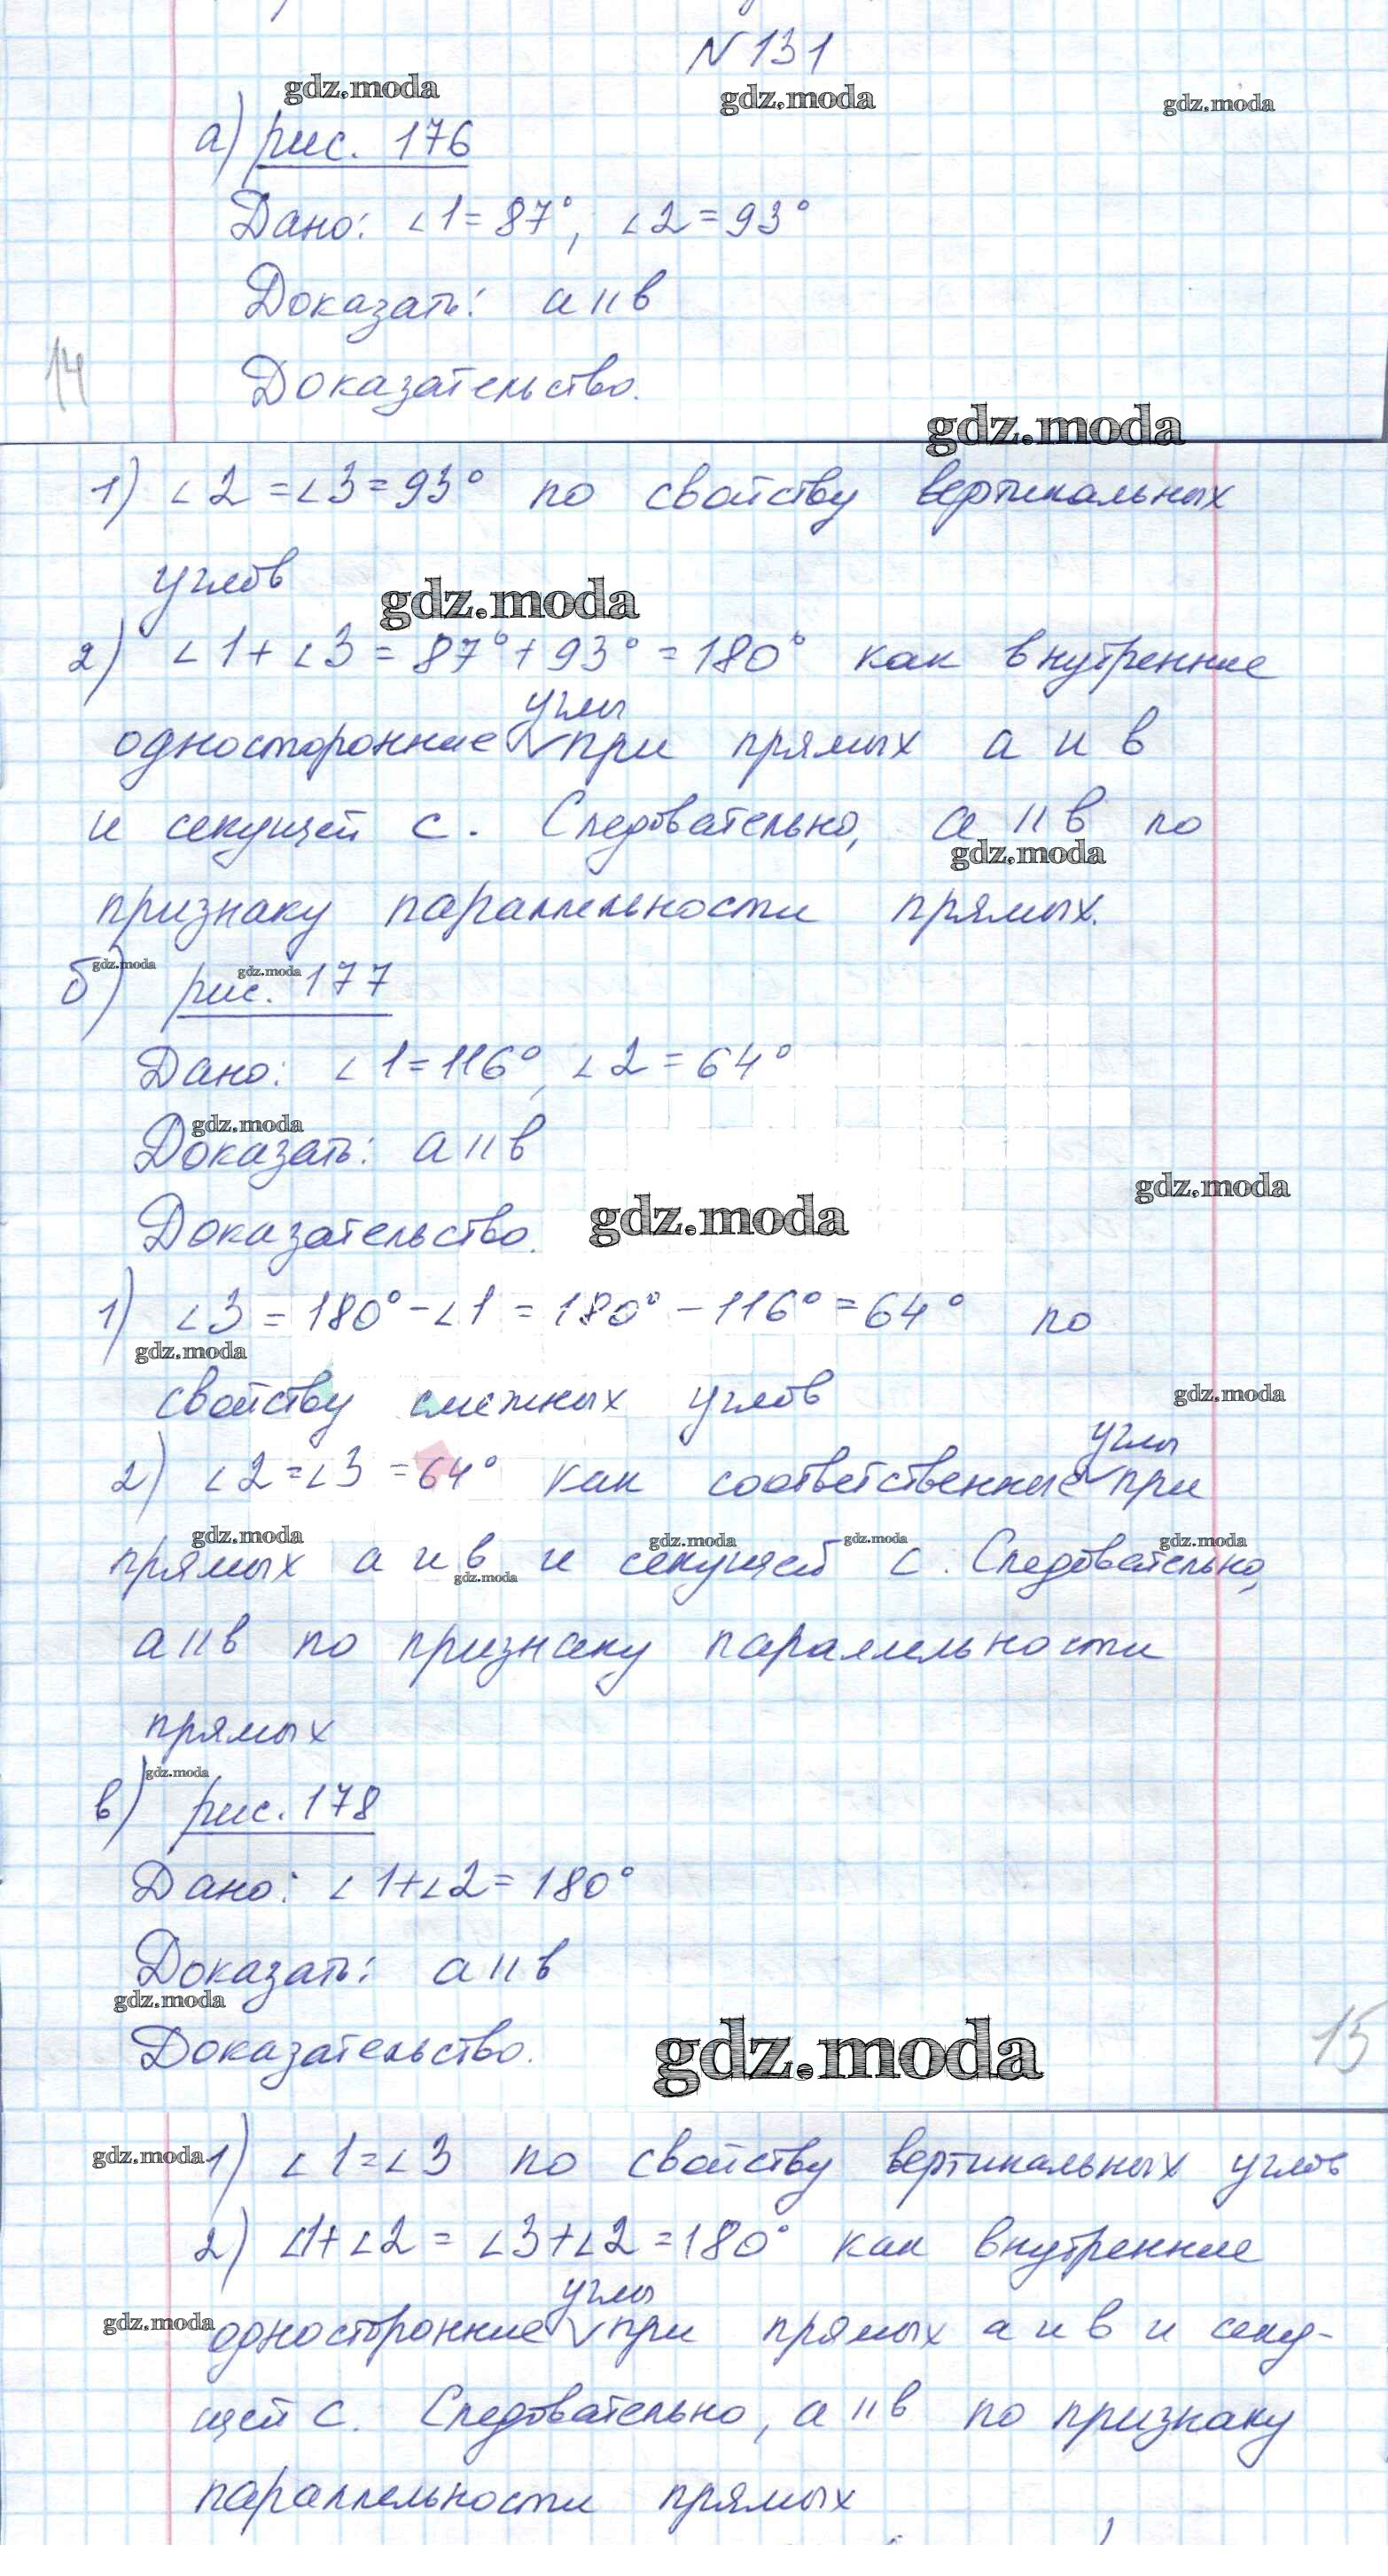 N 131
gdz.moda
gdz.moda
gdz.moda
а) рис. 176
Дано: ∠1=87°, ∠2=93°
Доказать: a∥b
14
Доказательство.
gdz.moda
1) ∠2=∠3=93° по свойству вертикальных
углов
gdz.moda
2) ∠1+∠3=87°+93°=180° как внутренние
углы
односторонние при прямых a и b
и секущей c. Следовательно, a∥b по
gdz.moda
признаку параллельности прямых.
gdz.moda
gdz.moda
б) рис. 177
Дано: ∠1=116°, ∠2=64°
gdz.moda
Доказать: a∥b
gdz.moda
Доказательство.
gdz.moda
1) ∠3=180°-∠1=180°-116°=64° по
gdz.moda
свойству смежных углов
gdz.moda
углы
2) ∠2=∠3=64° как соответственные при
gdz.moda
gdz.moda
gdz.moda
gdz.moda
прямых a и b и секущей c. Следовательно,
gdz.moda
a∥b по признаку параллельности
прямых
gdz.moda
в) рис. 178
Дано: ∠1+∠2=180°
Доказать: a∥b
gdz.moda
Доказательство.
gdz.moda
15
gdz.moda
1) ∠1=∠3 по свойству вертикальных углов
2) ∠1+∠2=∠3+∠2=180° как внутренние
углы
gdz.moda
односторонние при прямых a и b и секу-
щей c. Следовательно, a∥b по признаку
параллельности прямых